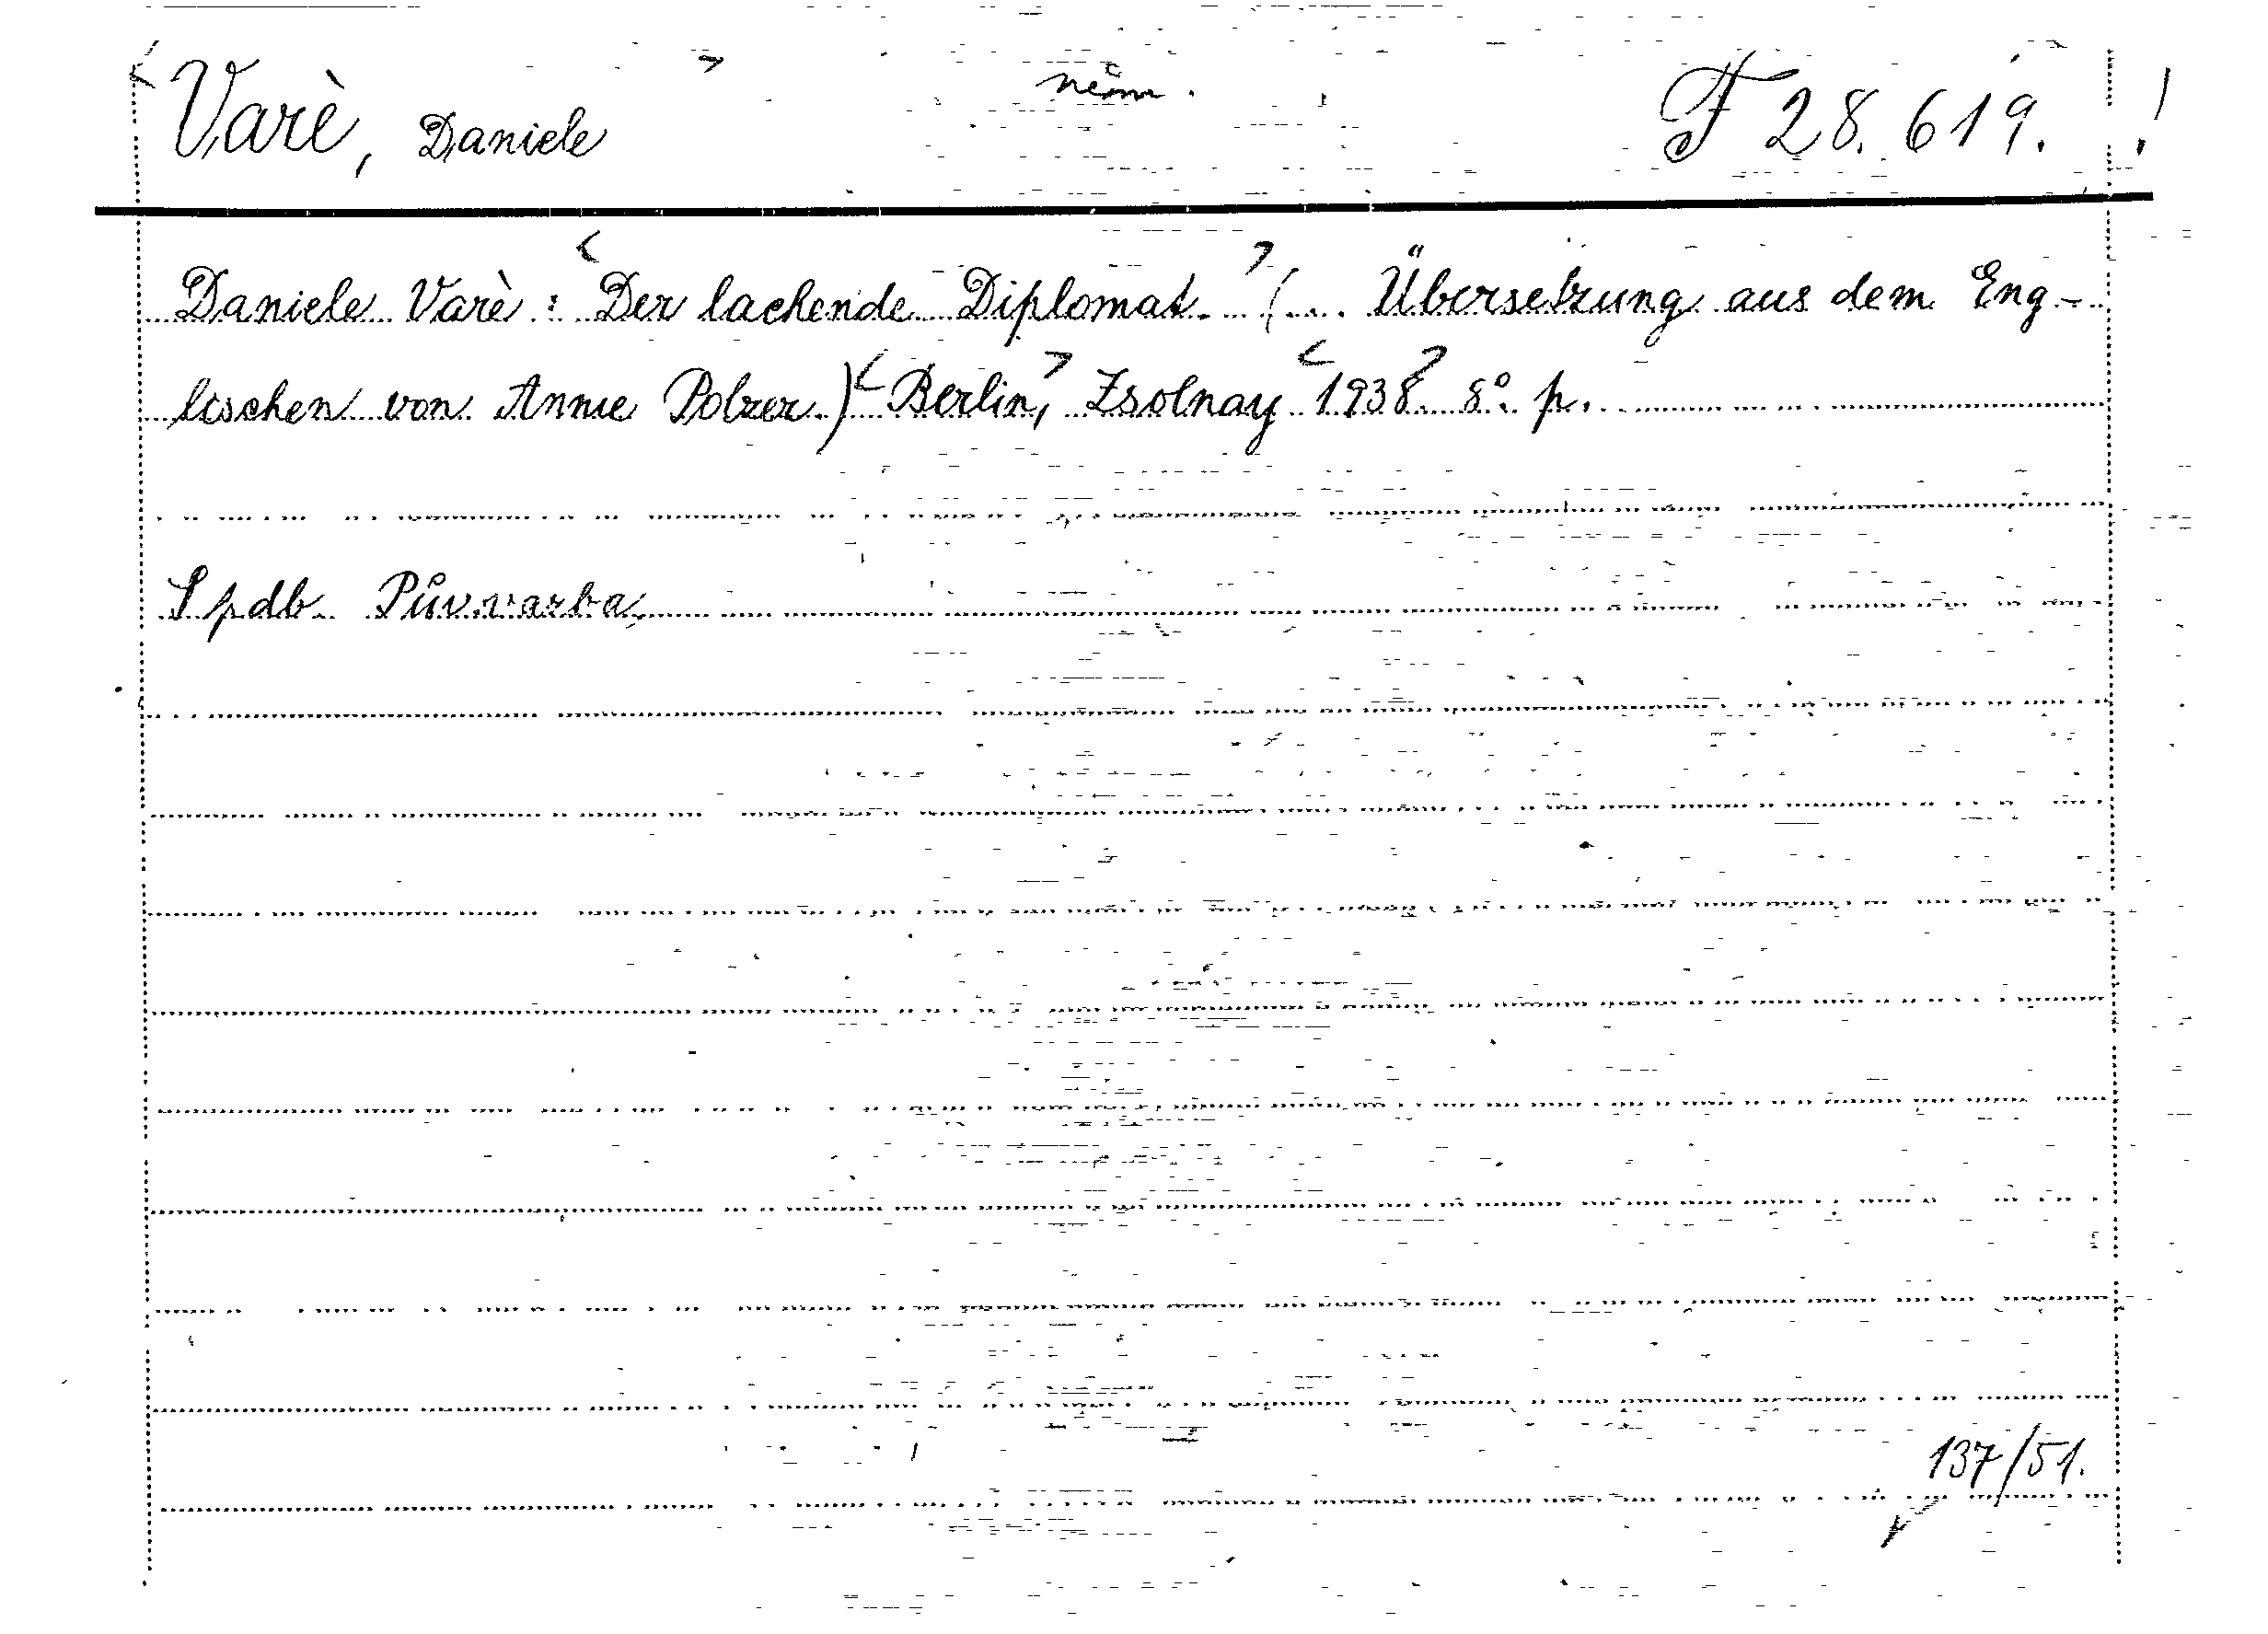 <Varè, Daniele> něm. F 28.619. !
Daniele Varè: <Der lachende Diplomat.> (... Übersetzung aus dem Eng-
lischen von Annie Polzer.) <Berlin,> Zsolnay <1938> 8°. p.
S pdb. Pův. vazba.
137/51.